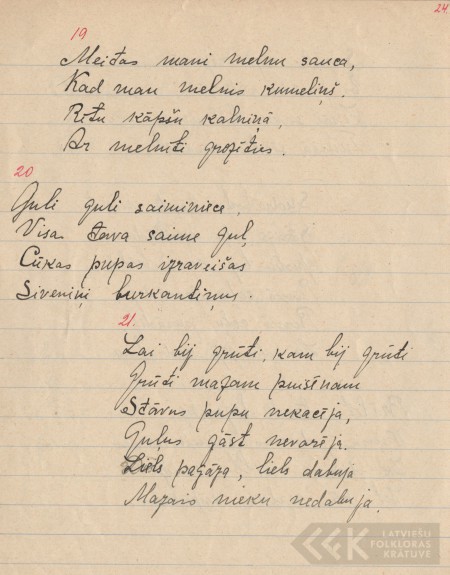 24.
19
Meitas mani melnu sauca,
Kad man melnis kumeliņš.
Rītu kāpšu kalniņā,
Ar melnīti grozīties.
20
Guli guli saiminiece,
Visa tava saime guļ,
Cūkas pupas izraveišas
Siveniņi burkantiņus.
21.
Lai bij grūti, kam bij grūti
Grūti mazam puisīnam
Stāvus pupu nekacīja,
Guļus gāst nevarīja.
Liels pagāza, liels dabuja
Mazais nieku nedabuja.
LATVIEŠU
FOLKLORAS
KRĀTUVE